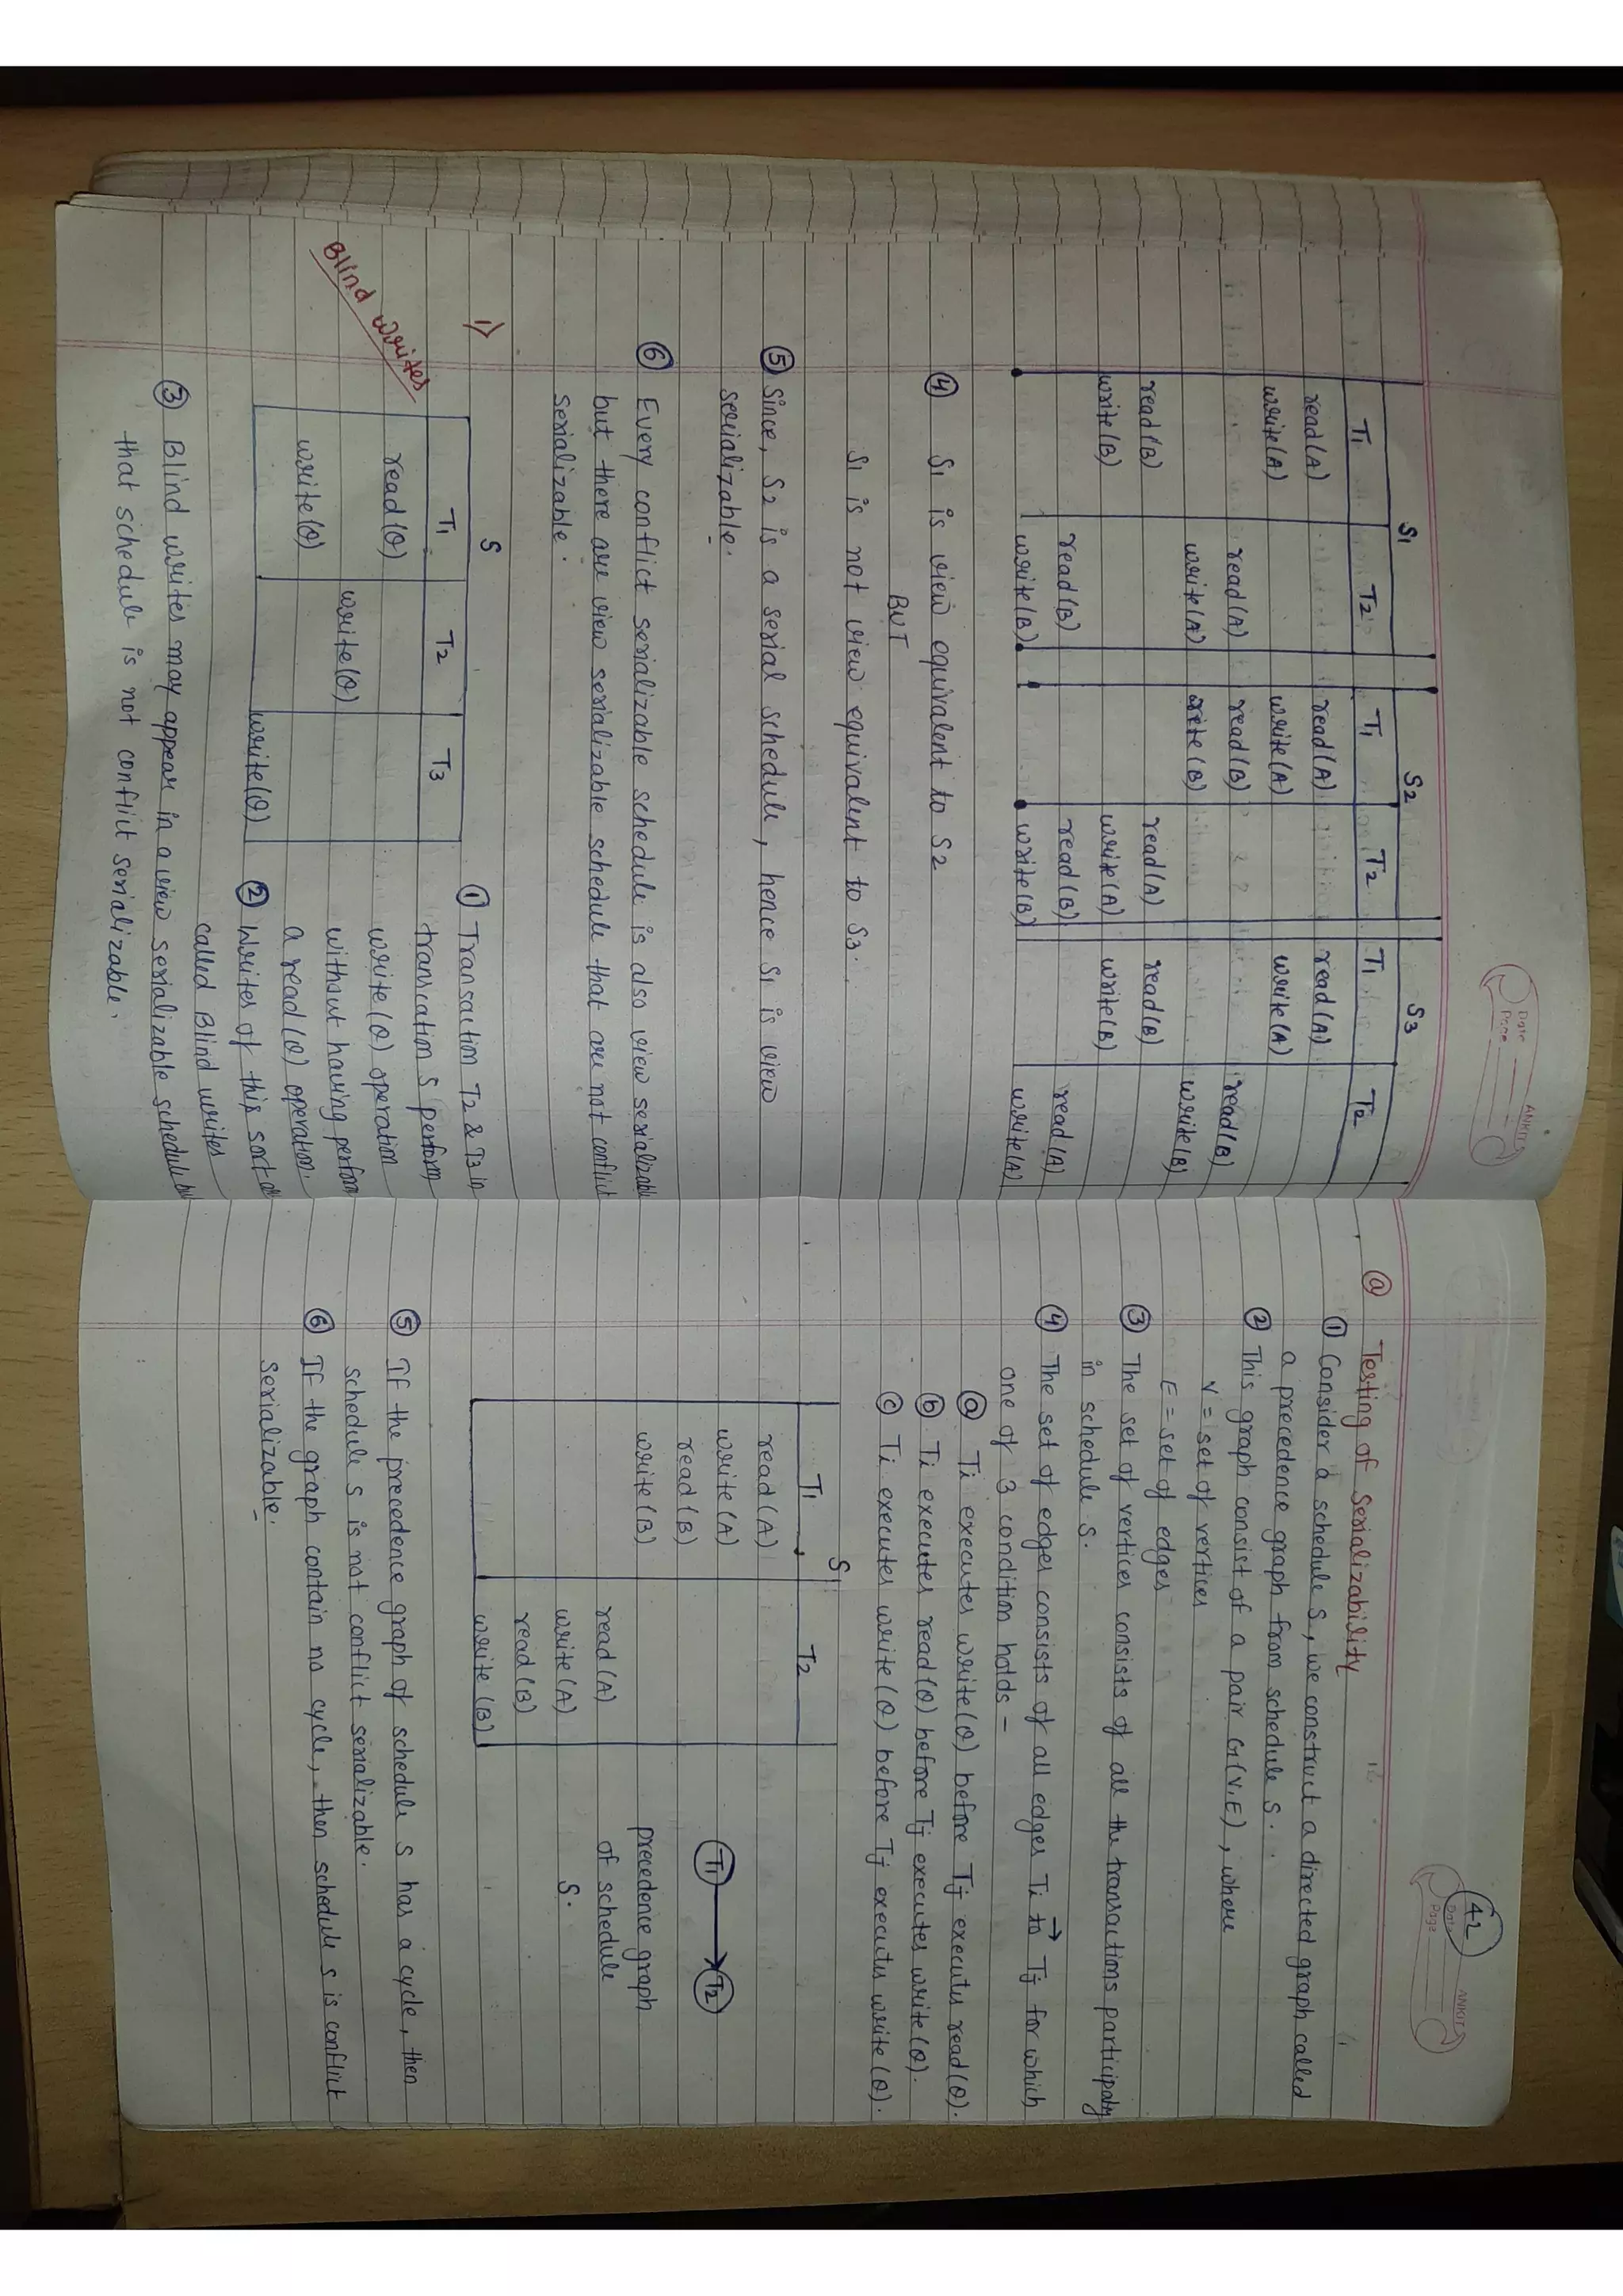 Date
Page
ANKIT
S1 S2 S3
T1 T2 T1 T2 T1 T2
read(A) read(A) read(A)
write(A) write(A) write(A)
read(A) read(B) read(B)
write(A) write(B) write(B)
read(B) read(A) read(B)
write(B) write(A) write(B)
read(B) read(B) read(A)
write(B) write(B) write(A)
④ S1 is view equivalent to S2
BUT
S1 is not view equivalent to S3.
⑤ Since, S2 is a serial schedule, hence S1 is view
serializable.
⑥ Every conflict serializable schedule is also view serializable
but there are view serializable schedule that are not conflict
serializable.
Blind writes
S
T1 T2 T3
read(Q)
write(Q)
write(Q)
write(Q)
① Transaction T2 & T3 in
transcation S perform
write(Q) operation
without having perform
a read(Q) operation.
② Writes of this sort
called Blind writes
③ Blind writes may appear in a view serializable schedule
that schedule is not conflict serializable.
42
Date
Page
ANKIT
@ Testing of Serializability
① Consider a schedule S, we construct a directed graph called
a precedence graph from schedule S.
② This graph consist of a pair G(V,E), where
V = set of vertices
E = set of edges
③ The set of vertices consists of all the transactions participaty
in schedule S.
④ The set of edges consists of all edges Ti to → Tj for which
one of 3 condition holds -
ⓐ Ti executes write(Q) before Tj executes read(Q).
ⓑ Ti executes read(Q) before Tj executes write(Q).
ⓒ Ti executes write(Q) before Tj executes write(Q).
S
T1 T2
read(A)
write(A)
read(B)
write(B)
read(A)
write(A)
read(B)
write(B)
T1 → T2
precedence graph
of schedule
S.
⑤ If the precedence graph of schedule S has a cycle, then
schedule S is not conflict serializable.
⑥ If the graph contain no cycle, then schedule S is conflict
Serializable.